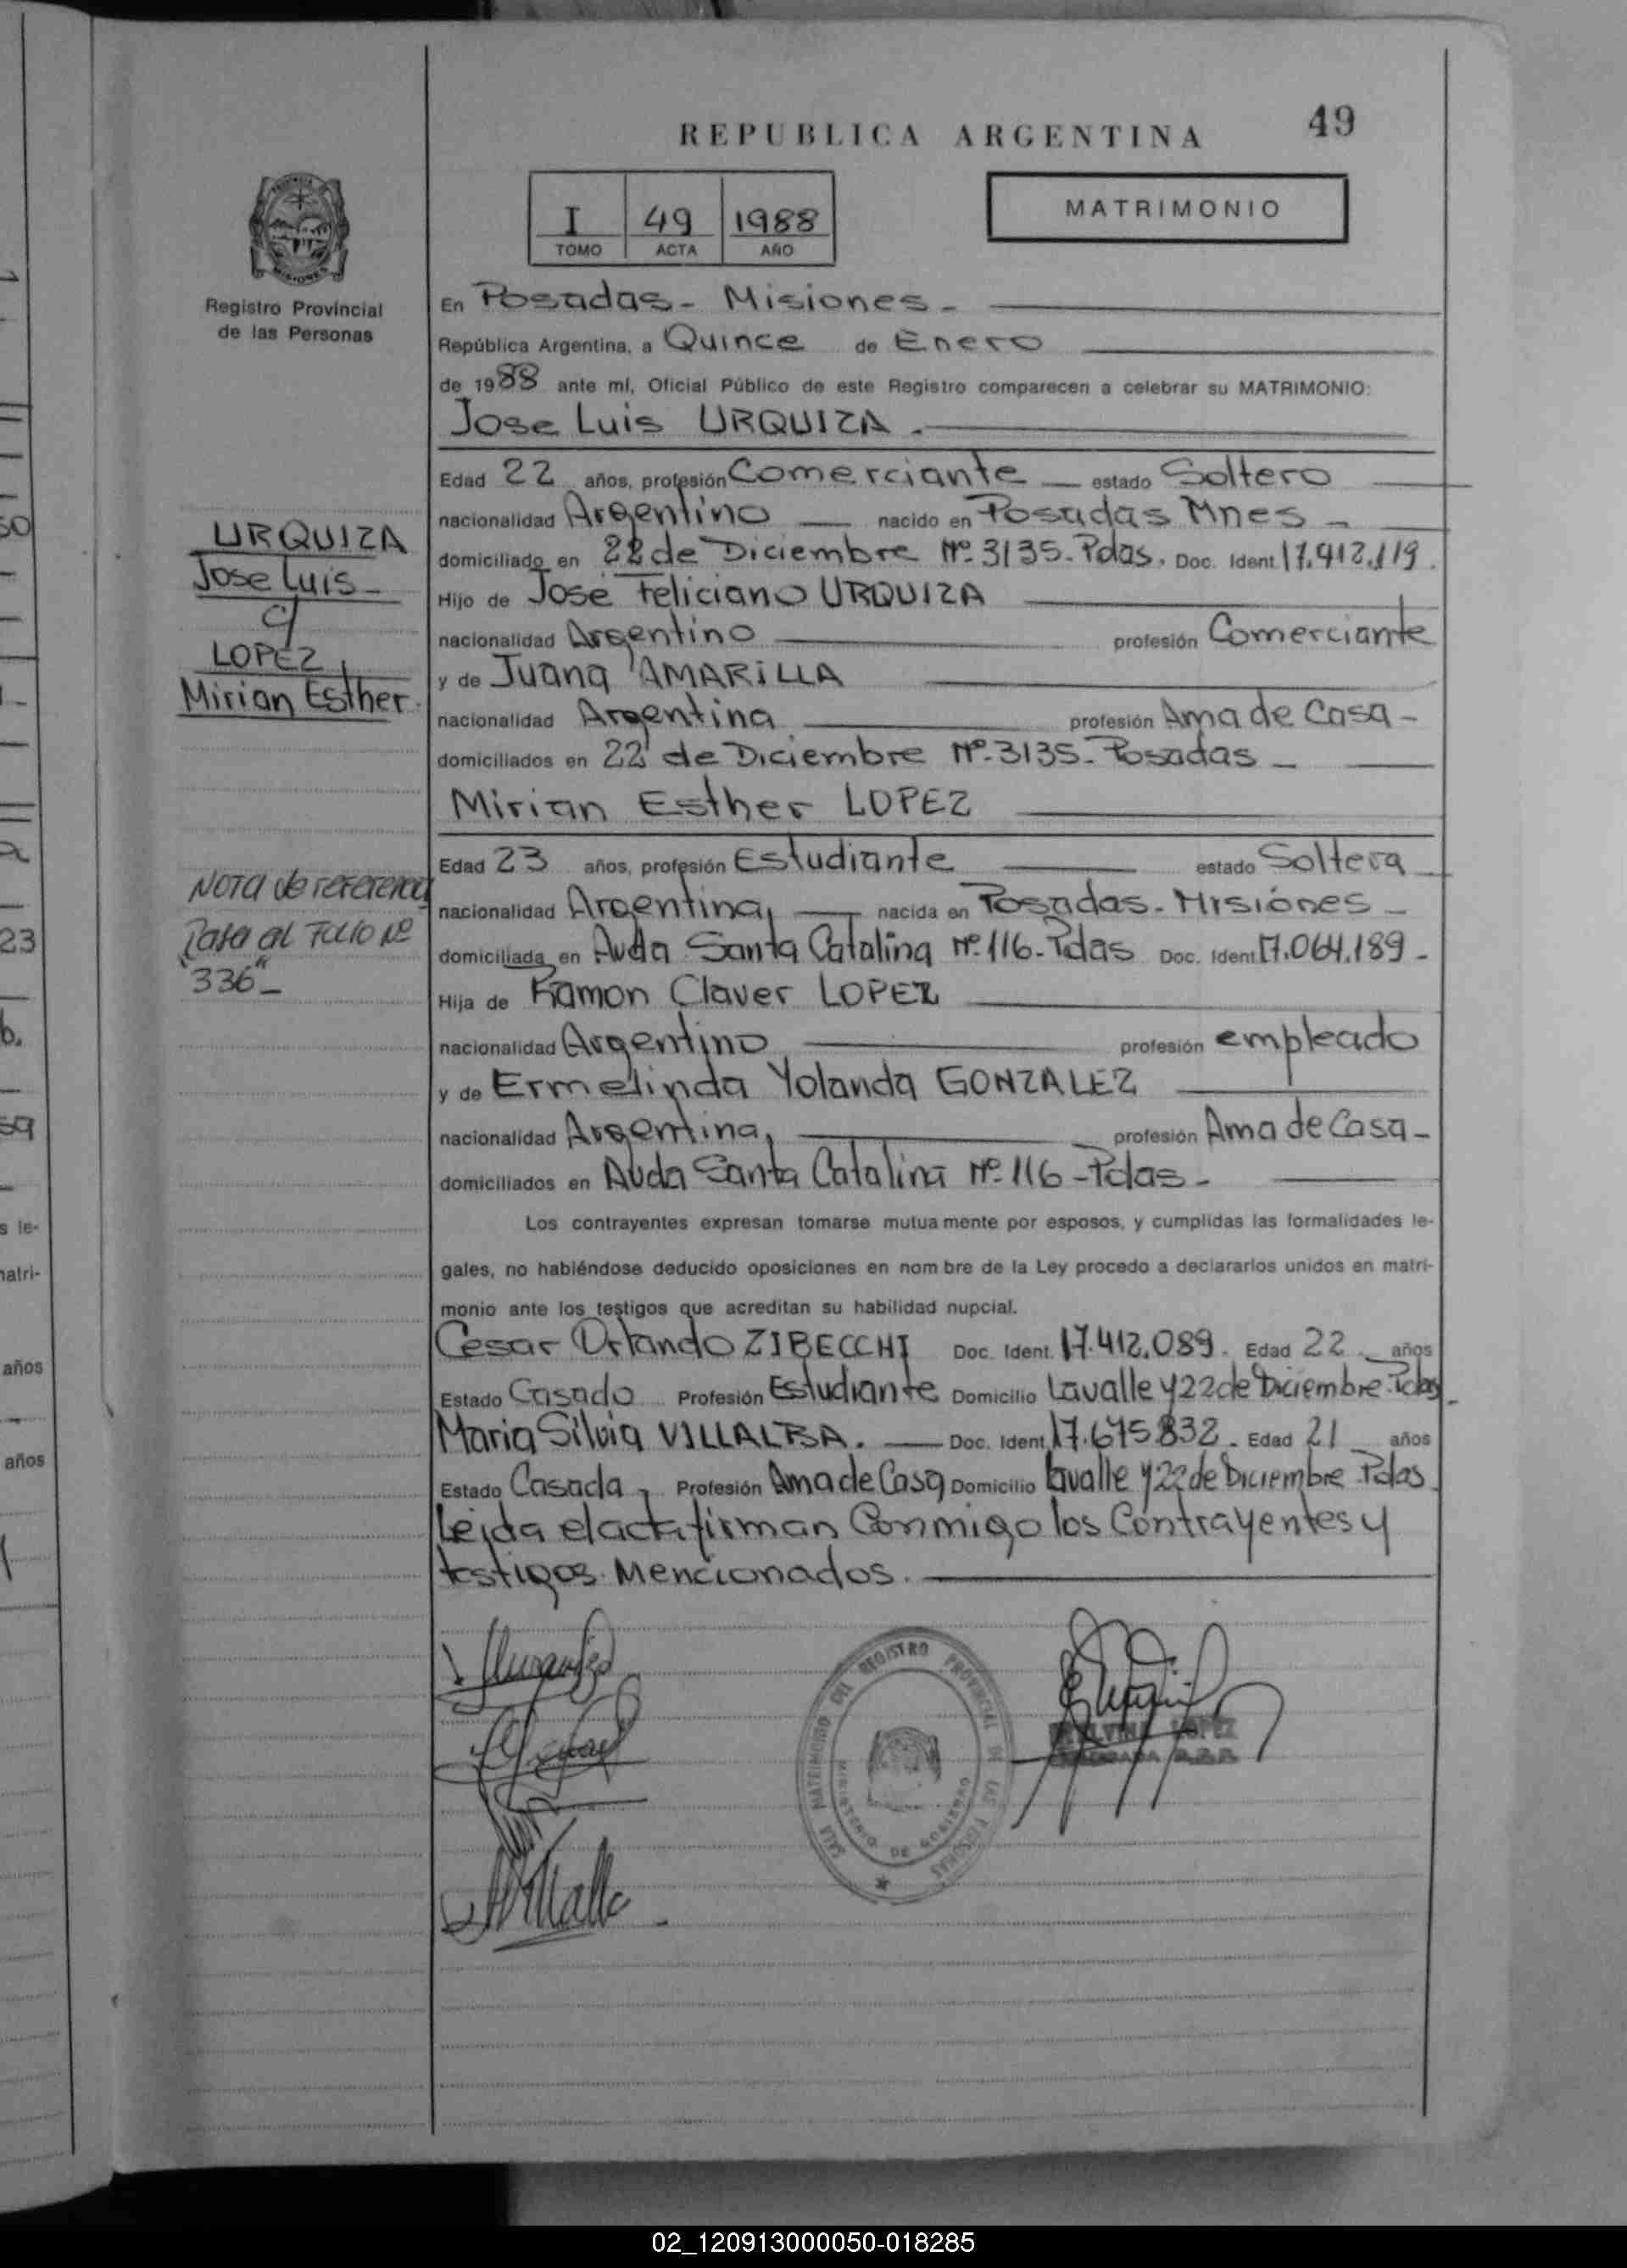 49
REPUBLICA ARGENTINA
I 49 1988
TOMO ACTA AÑO
MATRIMONIO
Registro Provincial
de las Personas
En Posadas - Misiones -
República Argentina, a Quince de Enero
de 1988 ante mí, Oficial Público de este Registro comparecen a celebrar su MATRIMONIO:
Jose Luis URQUIZA.
Edad 22 años, profesión Comerciante estado Soltero
nacionalidad Argentino nacido en Posadas Mnes -
domiciliado en 22 de Diciembre Nº 3135 - Pdas. Doc. Ident. 17.412.119.
Hijo de José Feliciano URQUIZA
nacionalidad Argentino profesión Comerciante
y de Juana AMARILLA
nacionalidad Argentina profesión Ama de Casa -
domiciliados en 22 de Diciembre Nº 3135 - Posadas -
Mirian Esther LOPEZ
Edad 23 años, profesión Estudiante estado Soltera
nacionalidad Argentina, nacida en Posadas - Misiones -
domiciliada en Avda Santa Catalina Nº 116 - Pdas Doc. Ident. 17.064.189 -
Hija de Ramon Claver LOPEZ
nacionalidad Argentino profesión empleado
y de Ermelinda Yolanda GONZALEZ
nacionalidad Argentina, profesión Ama de Casa -
domiciliados en Avda Santa Catalina Nº 116 - Pdas -
Los contrayentes expresan tomarse mutua mente por esposos, y cumplidas las formalidades le-
gales, no habiéndose deducido oposiciones en nom bre de la Ley procedo a declararlos unidos en matri-
monio ante los testigos que acreditan su habilidad nupcial.
Cesar Orlando ZIBECCHI Doc. Ident. 17.412.089. Edad 22 años
Estado Casado Profesión Estudiante Domicilio Lavalle y 22 de Diciembre - Pdas -
Maria Silvia VILLALBA. Doc. Ident. 17.675.832 - Edad 21 años
Estado Casada, Profesión Ama de Casa Domicilio Lavalle y 22 de Diciembre - Pdas
Leida el acta firman Conmigo los Contrayentes y
testigos Mencionados.
URQUIZA
Jose Luis -
c/
LOPEZ,
Mirian Esther.
Nota de referencia
Pasa al Folio Nº
"336" -
SALA MATRIMONIO DEL REGISTRO PROVINCIAL DE LAS PERSONAS
MINISTERIO DE GOBIERNO
LOPEZ
50
23
6.
59
s le-
matri-
años
años
02_120913000050-018285